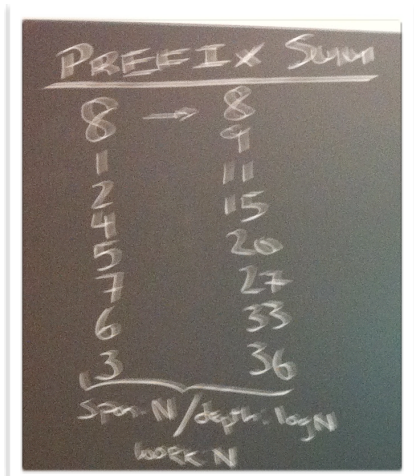 PREFIX Sum
8 → 8
1 9
2 11
4 15
5 20
7 27
6 33
3 36
Span: N / depth: logN
work N